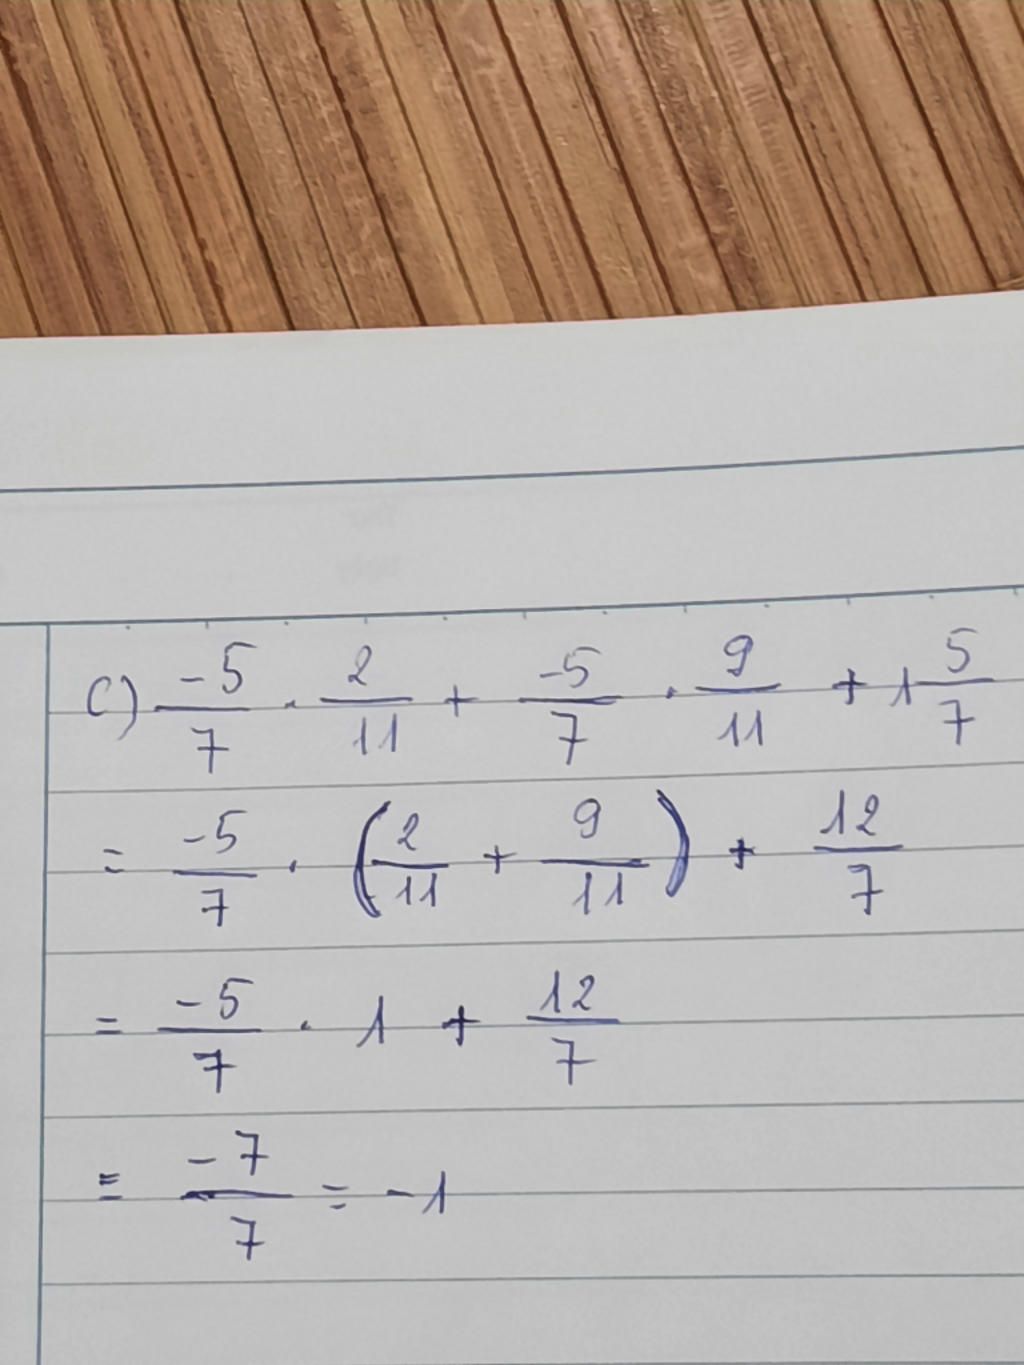 C) -5/7 . 2/11 + -5/7 . 9/11 + 1 5/7
= -5/7 . (2/11 + 9/11) + 12/7
= -5/7 . 1 + 12/7
= -7/7 = -1